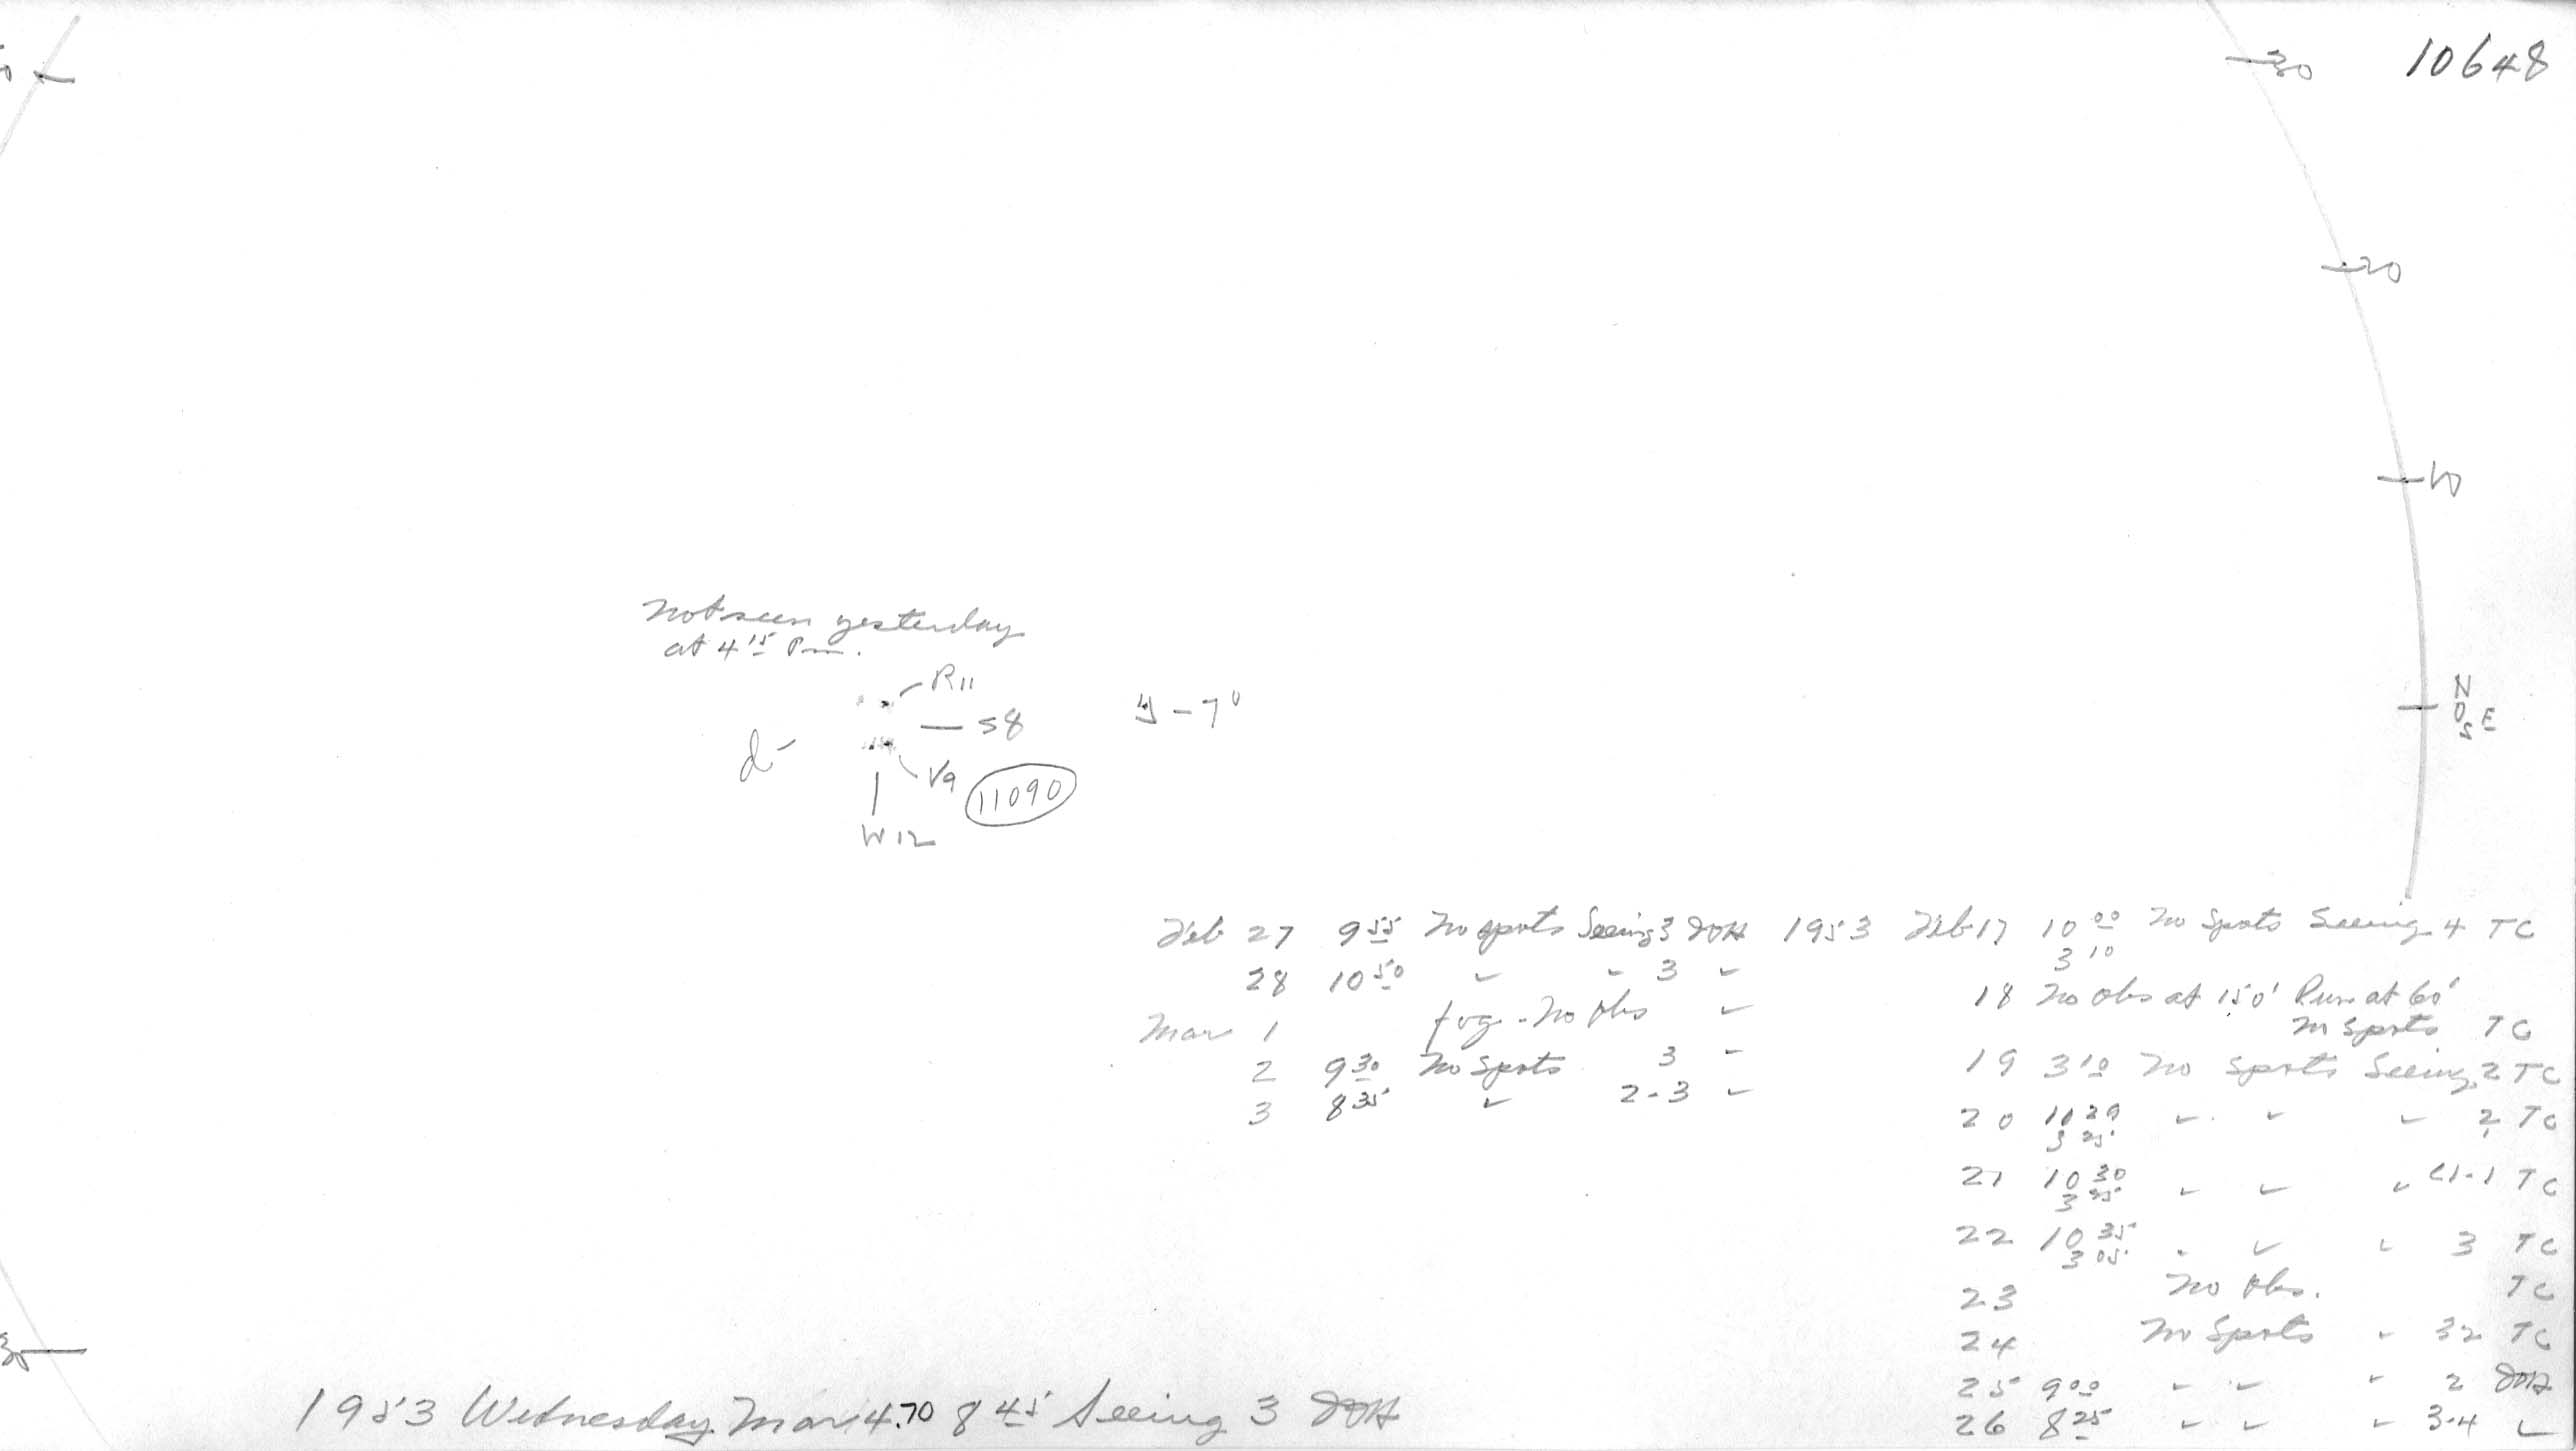 10648
30
20
10
N
0 E
S
not seen yesterday
at 4 15 Pm.
R11
S8
d
V9
11090
W12
y - 7°
Feb 27 9 55 No spots Seeing 3 DOH
28 10 50 " " 3 "
Mar 1 fog - No Obs "
2 9 30 No Spots 3 "
3 8 35 " 2-3 "
1953 Feb 17 10 00 No Spots Seeing 4 TC
3 10
18 No Obs at 150' Run at 60'
No Spots TC
19 3 10 No Spots Seeing 2 TC
20 10 20 " " " 2 TC
3 25
21 10 30 " " " <1-1 TC
3 25
22 10 35 " " " 3 TC
3 05
23 No Obs. TC
24 No Spots " 32 TC
25 9 00 " " " 2 DOH
26 8 25 " " " 3-4 "
30
1953 Wednesday Mar 4.70 8 45 Seeing 3 DOH